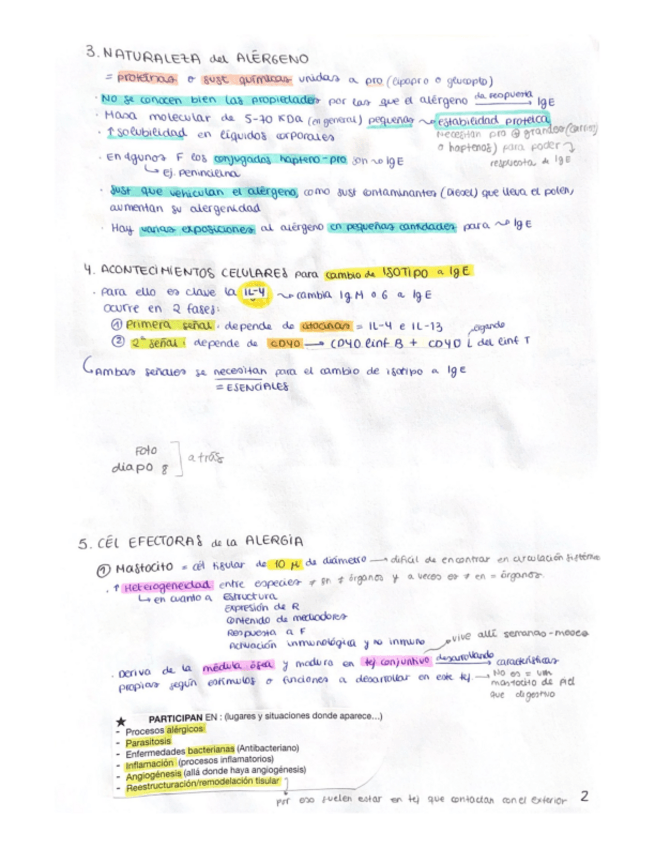 3. NATURALEZA del ALÉRGENO
= proteínas o sust químicas unidas a pro (lipopro o glucopto)
· No se conocen bien las propiedades por las que el alérgeno de respuesta → IgE
· Masa molecular de 5-70 KDa (en general) pequeñas ~ estabilidad proteica
Necesitan pro ⊕ grandes (carriers
o haptenos) para poder
respuesta de IgE
· ↑ solubilidad en líquidos corporales
· En algunos F los conjugados hapteno-pro son ~ IgE
↳ ej. Penincilina
· Sust que vehiculan el alérgeno, como sust contaminantes (Diesel) que lleva el polen,
aumentan su alergenidad
· Hay varias exposiciones al alérgeno en pequeñas cantidades para ~ IgE
4. ACONTECIMIENTOS CELULARES para cambio de ISOTIPO a IgE
· para ello es clave la IL-4 ~ cambia IgM o G a IgE
ocurre en 2 fases:
① Primera señal: depende de citocinas = IL-4 e IL-13
② 2ª señal: depende de CD40 → CD40 linf B + CD40 L del linf T
ligando
Ambas señales se necesitan para el cambio de isotipo a IgE
= ESENCIALES
Foto
diapo 8 ] atrás
5. CÉL EFECTORAS de la ALERGIA
① Mastocito = cél tisular de 10 µ de diámetro → difícil de encontrar en circulación sistémica
· ↑ Heterogeneidad entre especies ≠ en ≠ órganos y a veces es ≠ en = órganos.
↳ en cuanto a Estructura
Expresión de R
Contenido de mediadores
Respuesta a F
Activación inmunológica y no inmuno
vive allí semanas-meses
· Deriva de la médula ósea y madura en tej conjuntivo desarrollando → características
propias según estímulos o funciones a desarrollar en este tej. → No es = un
mastocito de piel
que digestivo
★ PARTICIPAN EN : (lugares y situaciones donde aparece...)
- Procesos alérgicos
- Parasitosis
- Enfermedades bacterianas (Antibacteriano)
- Inflamación (procesos inflamatorios)
- Angiogénesis (allá donde haya angiogénesis)
- Reestructuración/remodelación tisular
por eso suelen estar en tej que contactan con el exterior 2